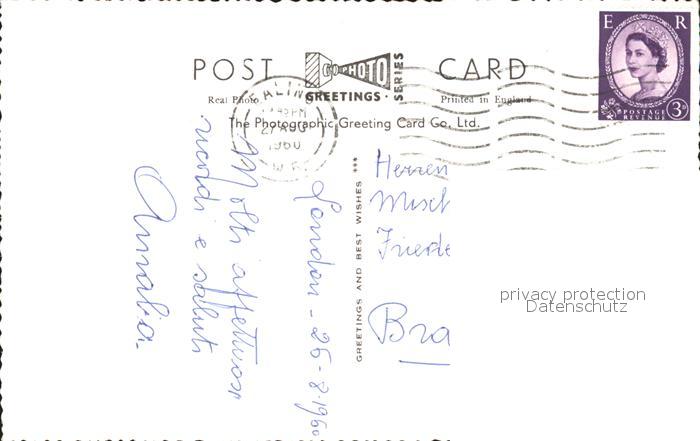 POST CARD
GO PHOTO
GREETINGS · SERIES
Real Photo.
Printed in England
The Photographic Greeting Card Co. Ltd.
EALING
27 AUG
1960
W.5
E R
POSTAGE
REVENUE
3D
GREETINGS AND BEST WISHES ***
London - 26-8-1960
Molti affettuosi
ricordi e saluti
Herren
Bra
privacy protection
Datenschutz